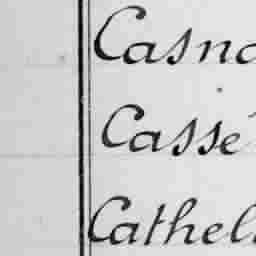 Casna
Cassé
Cathel